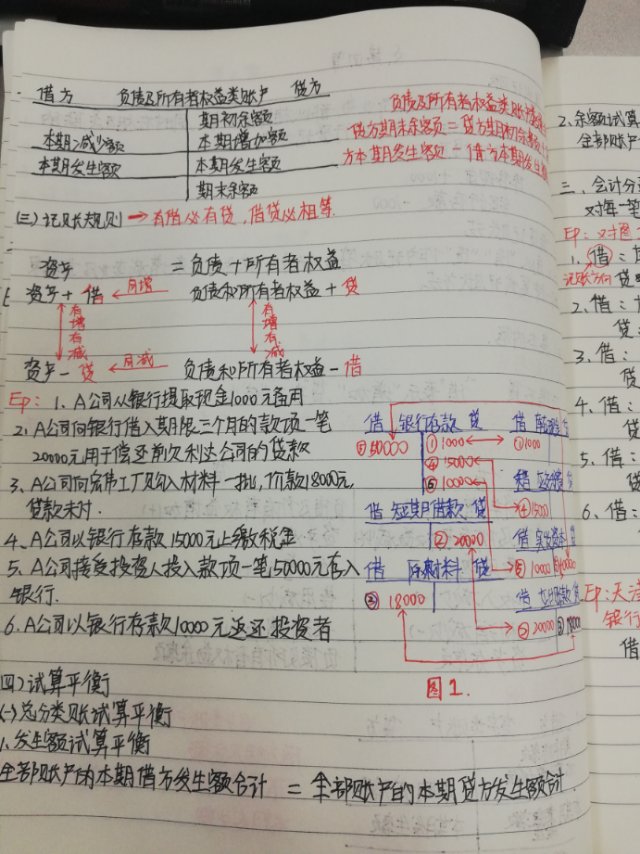 借方 负债及所有者权益类账户 贷方
期初余额
本期减少额 本期增加额
本期发生额 本期发生额
期末余额
负债及所有者权益类账户
贷方期末余额=贷方期初余额+
方本期发生额-借方本期发生
(三)记账规则→有借必有贷,借贷必相等.
资产 =负债+所有者权益
资产+借 ← 同增 负债和所有者权益+贷
有增有减 有增有减
资产-贷 ← 同减 负债和所有者权益-借
Ep: 1、A公司从银行提取现金1000元备用
2、A公司向银行借入期限三个月的款项一笔
20000元用于偿还前欠利达公司的贷款
3、A公司向宏伟工厂购入材料一批,价款18000元,
贷款未付.
4、A公司以银行存款15000元上缴税金
5、A公司接受投资人投入款项一笔50000元存入
银行.
6、A公司以银行存款10000元返还投资者
借 银行存款 贷
⑤50000 ①1000
④15000
⑥10000
借 短期借款 贷
②20000
借 原材料 贷
③18000
①1000
④1500
⑥10000
②20000
图1.
四)试算平衡
(一)总分类账试算平衡
1、发生额试算平衡
全部账户的本期借方发生额合计 = 全部账户的本期贷方发生额合计
2、余额试算
全部账户
三、会计分
对每一笔
1、借:
记账方向 贷
2、借:
贷
3、借:
贷
4、借:
贷
5、借:
贷
6、借:
Ep:天
银行
借